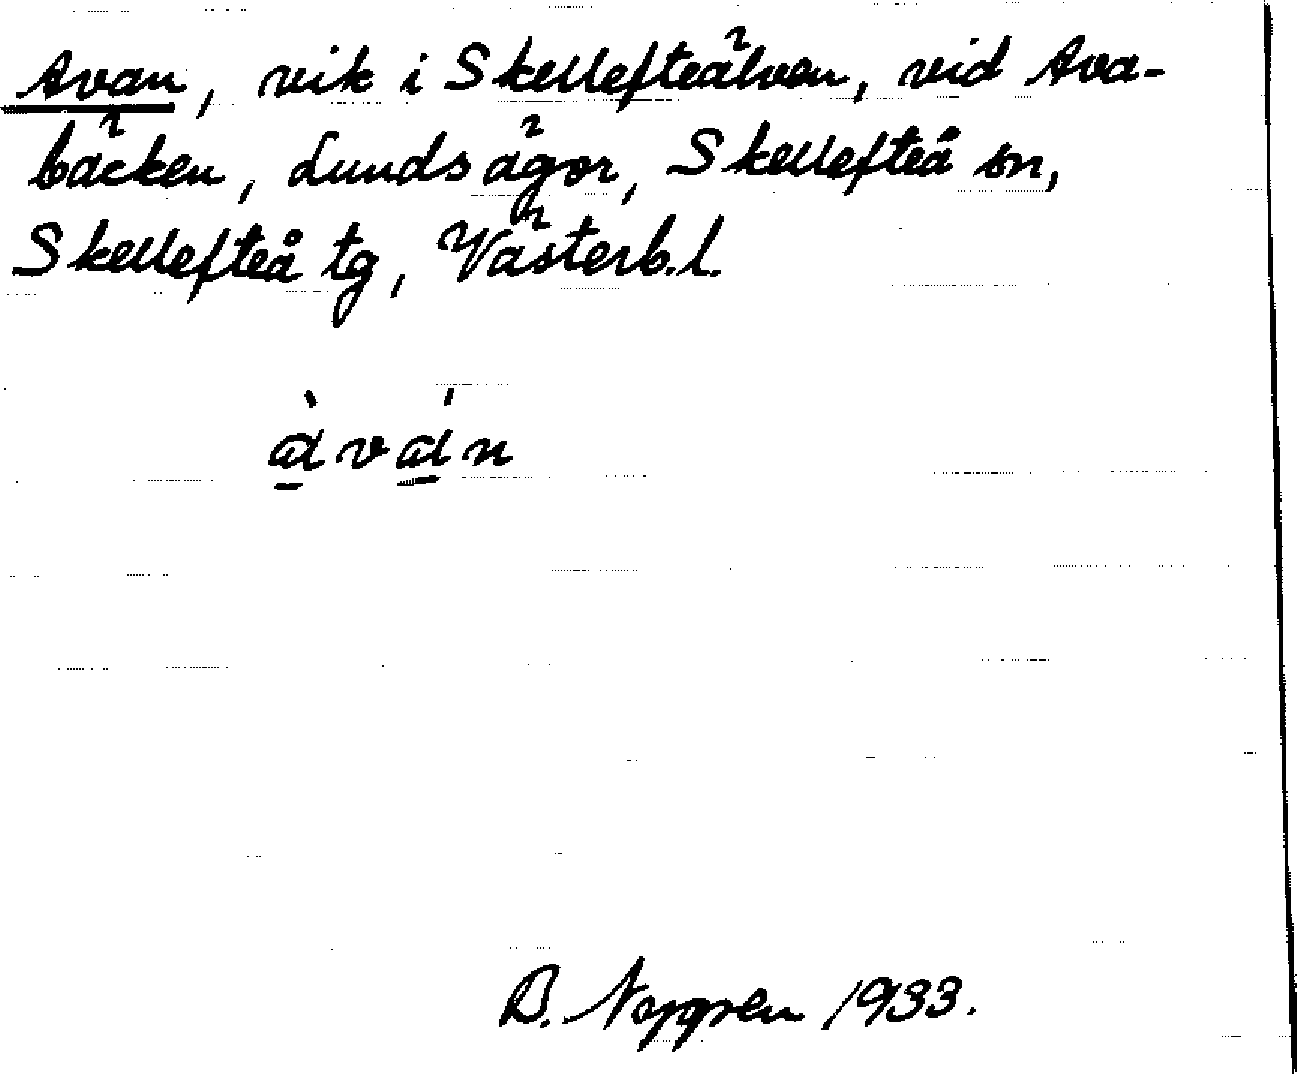 Avan, vik i Skellefteälven, vid Ava-
bäcken, Lunds ägor, Skellefteå sn,
Skellefteå tg, Västerb.l.
àván
B. Noppen 1933.